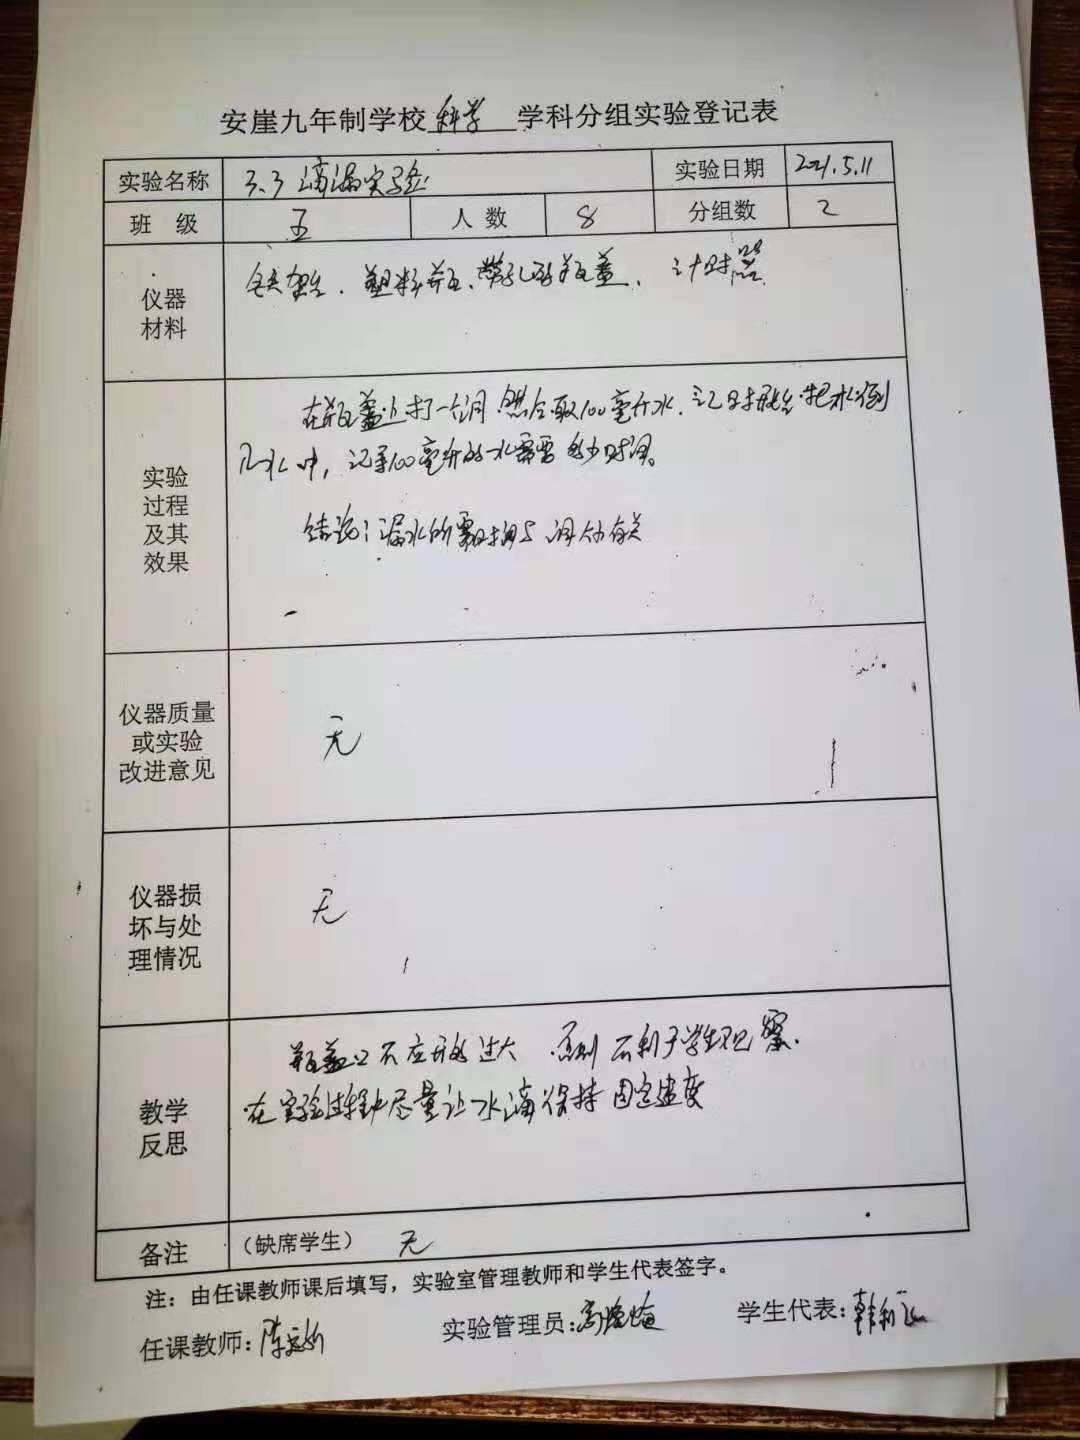 安崖九年制学校 科学 学科分组实验登记表
实验名称 3.3 滴漏实验 实验日期 2021.5.11
班 级 五 人 数 8 分组数 2
仪器
材料
铁架台、塑料瓶、带孔的瓶盖、计时器
实验
过程
及其
效果
在瓶盖上打一个洞.然后取100毫升水.记时开始.把水倒
水中,记录100毫升的水需要多少时间。
结论:漏水所需时间与洞大小有关
仪器质量
或实验
改进意见
无
仪器损
坏与处
理情况
无
教学
反思
瓶盖口不应开的过大.否则不利于学生观察.
在实验过程中尽量让水滴保持固定速度
备注 (缺席学生) 无
注:由任课教师课后填写,实验室管理教师和学生代表签字。
任课教师: 陈 实验管理员: 高 学生代表: 韩